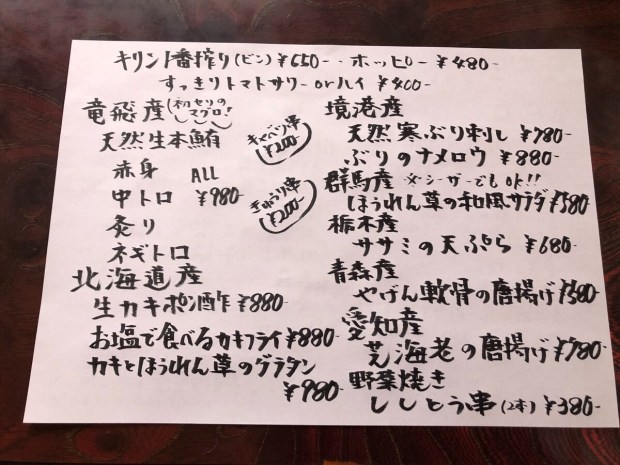 キリン1番搾り(ビン)¥650- ・ホッピー ¥480-
すっきりトマトサワー orハイ ¥400-
竜飛産(初セリのマグロ!)
天然生本鮪
赤身 ALL
中トロ ¥980-
炙り
ネギトロ
キャベツ串 ¥200-
きゅうり串 ¥200-
北海道産
生カキポン酢 ¥880-
お塩で食べるカキフライ ¥880-
カキとほうれん草のグラタン
¥980-
境港産
天然寒ぶり刺し ¥780-
ぶりのナメロウ ¥880-
群馬産 ※シーザーでもOK!!
ほうれん草の和風サラダ ¥580
栃木産
ササミの天ぷら ¥680-
青森産
やげん軟骨の唐揚げ ¥580
愛知産
芝海老の唐揚げ ¥780-
野菜焼き
ししとう串(2本) ¥380-